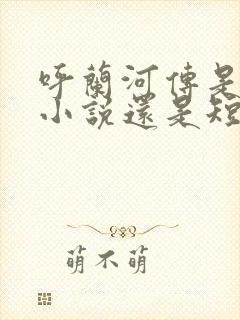 呼蘭河傳是
小說還是短
萌不萌